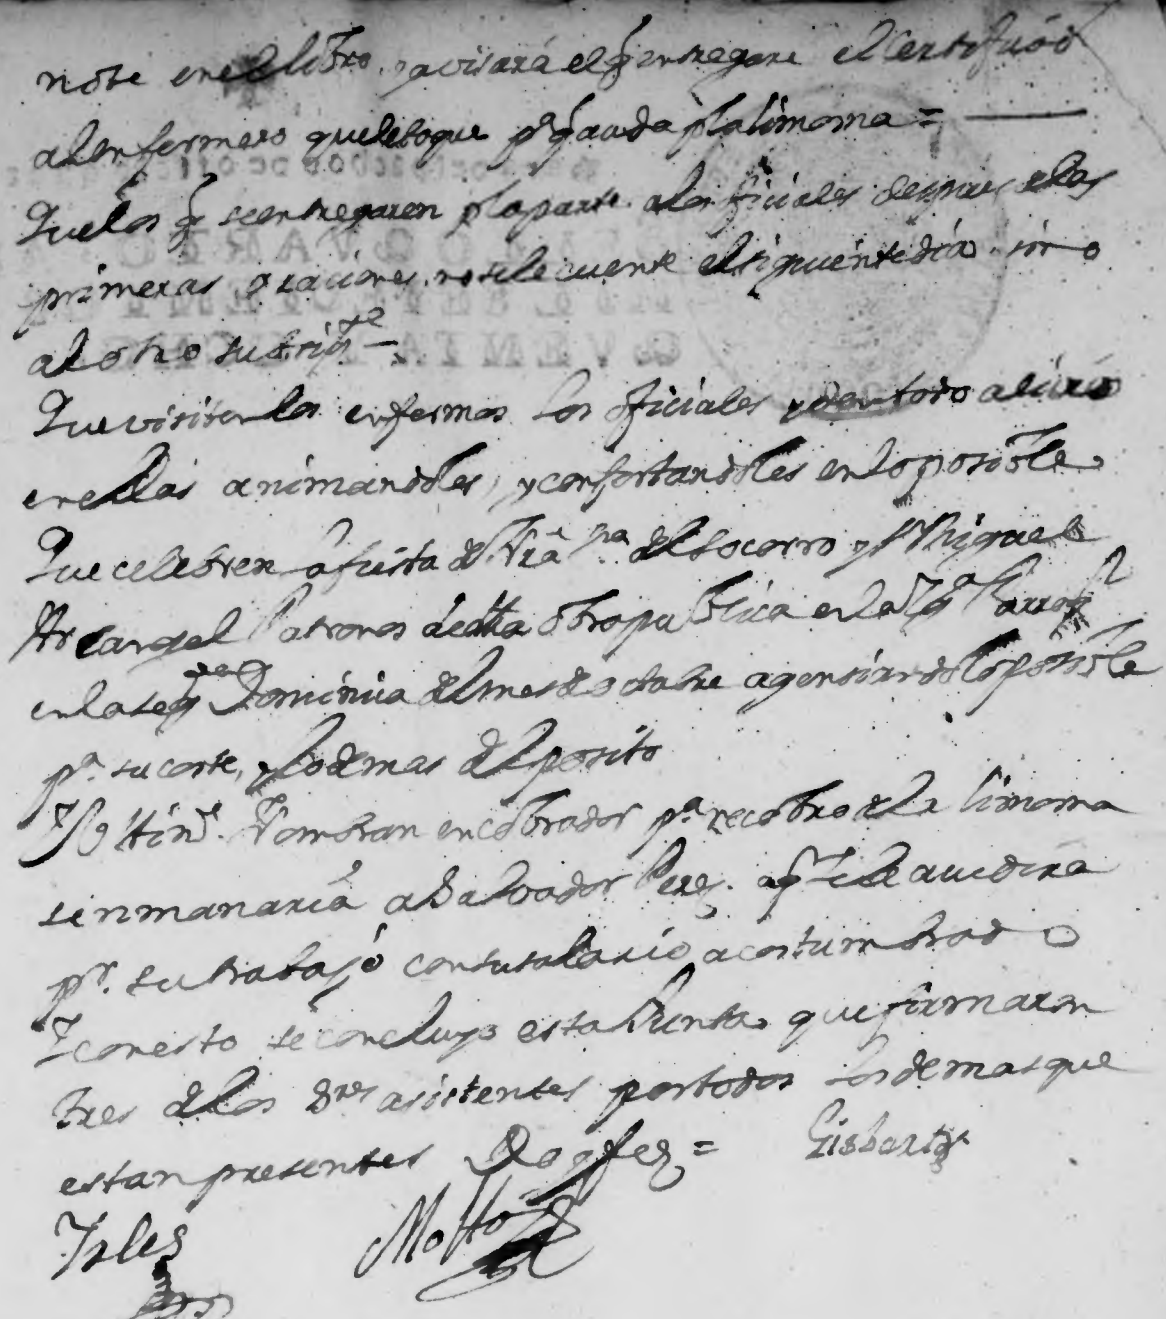 note en el libro, y avisará el q entregare el certificad
al enfermero que le toque pª q acuda pr la limosna =
Que los q se entregaren pr la parte a los oficiales despues de las
primeras oraciones, no se le cuente el siguiente dia sino
al otro subsigte
Que visiten los enfermos los oficiales y den todo alivio
en ellas animandoles, y confortandoles en lo posible
Que celebren la fiesta de Nra Sra del Socorro y Sn Miguel
Arcangel Patronos de esta obra publica en la Yga Parroql
en la segda Dominica del mes de octubre agenciando lo posible
pª su coste, y lo demas del posito
Nombran en cobrador pª recobro de la limosna
semmanaria a Salvador Perez. a qn se le acudira
pr. su trabajo con su salario acostumbrado
Y con esto se concluyo esta Junta, que firmaron
tres de los Sres asistentes por todos los demas que
estan presentes =
Gisbert
Ysles
Motto